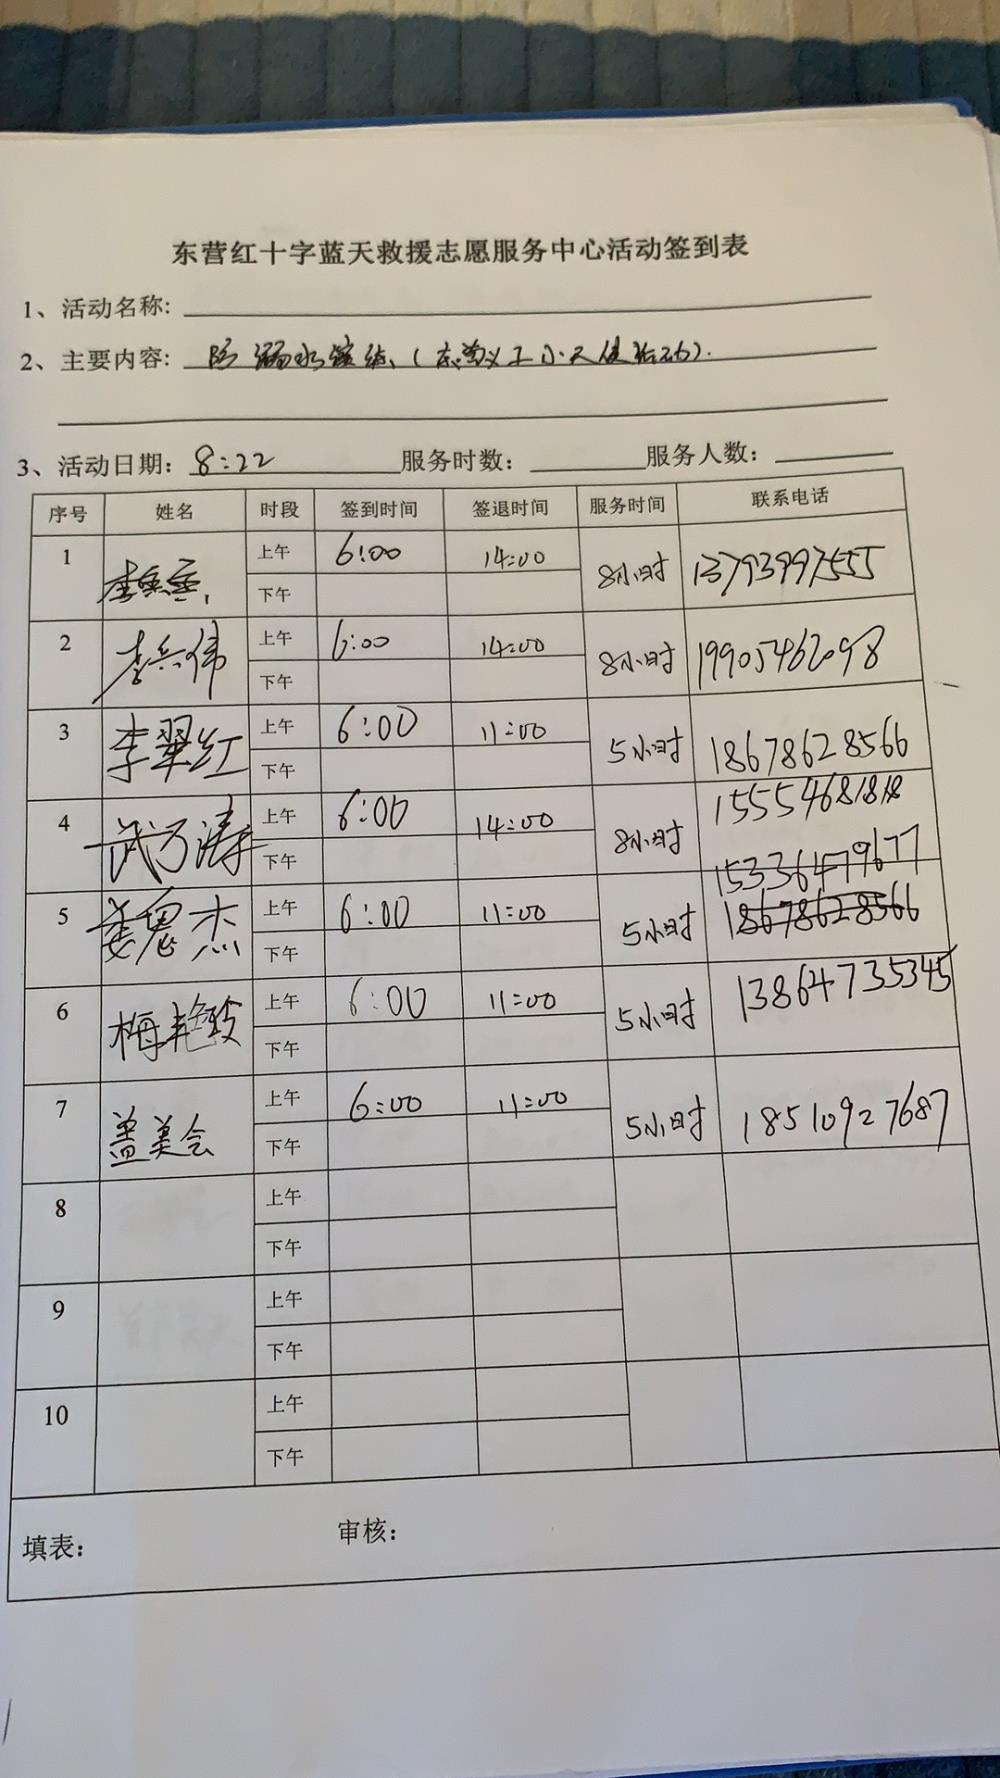 东营红十字蓝天救援志愿服务中心活动签到表
1、活动名称:
2、主要内容: 防溺水 (东营义工小天使
3、活动日期: 8:22 服务时数: 服务人数:
序号 姓名 时段 签到时间 签退时间 服务时间 联系电话
1 李 上午 6:00 14:00 8小时 13793997555
下午
2 李兴伟 上午 6:00 14:00 8小时 19905462098
下午
3 李翠红 上午 6:00 11:00 5小时 18678628566
下午
4 武万涛 上午 6:00 14:00 8小时 15554681818
下午
15336479677
5 姜忠杰 上午 6:00 11:00 5小时 18678628566
下午
6 梅艳玲 上午 6:00 11:00 5小时 13864735345
下午
7 盖美会 上午 6:00 11:00 5小时 18510927687
下午
8 上午
下午
9 上午
下午
10 上午
下午
填表: 审核: